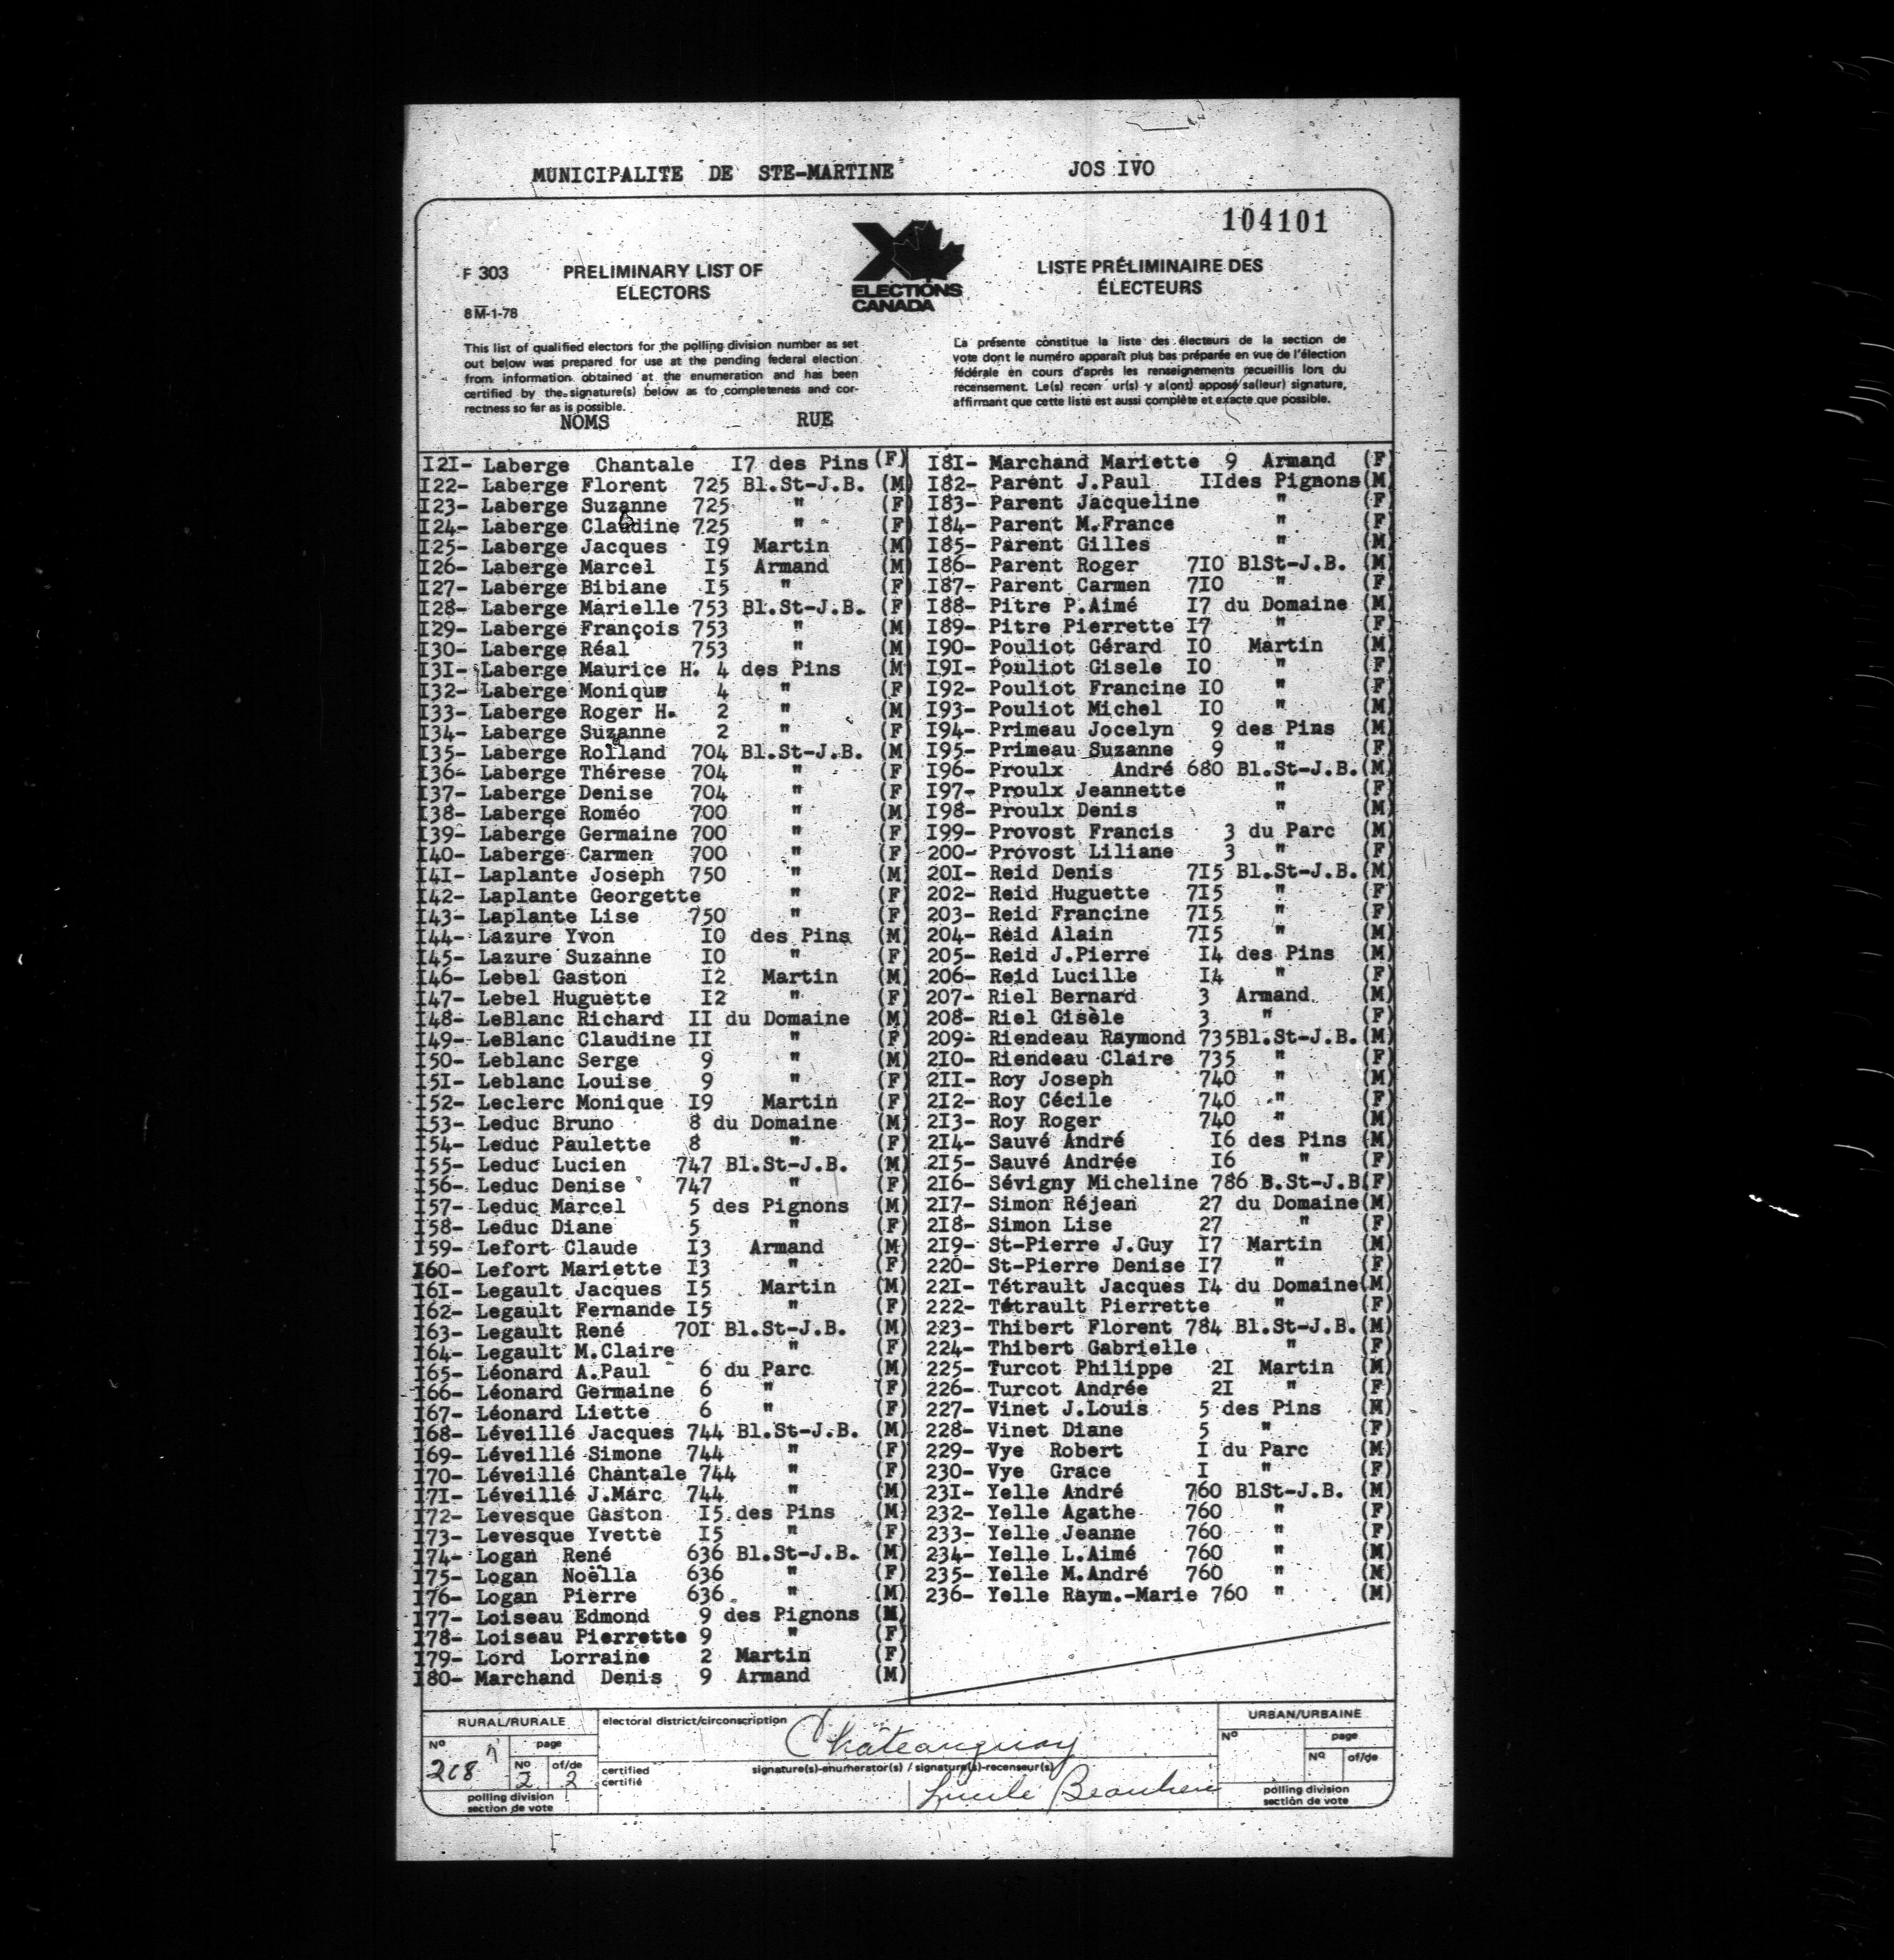 MUNICIPALITE DE STE-MARTINE JOS IVO
104101
F 303
8M-1-78
PRELIMINARY LIST OF
ELECTORS
ELECTIONS
CANADA
LISTE PRÉLIMINAIRE DES
ÉLECTEURS
This list of qualified electors for the polling division number as set
out below was prepared for use at the pending federal election
from information obtained at the enumeration and has been
certified by the signature(s) below as to completeness and cor-
rectness so far as is possible.
La présente constitue la liste des électeurs de la section de
vote dont le numéro apparaît plus bas préparée en vue de l'élection
fédérale en cours d'après les renseignements recueillis lors du
recensement. Le(s) recen ur(s) y a(ont) apposé sa(leur) signature,
affirmant que cette liste est aussi complète et exacte que possible.
NOMS RUE
I2I- Laberge Chantale I7 des Pins (F)
I22- Laberge Florent 725 Bl.St-J.B. (M)
I23- Laberge Suzanne 725 " (F)
I24- Laberge Claudine 725 " (F)
I25- Laberge Jacques I9 Martin (M)
I26- Laberge Marcel I5 Armand (M)
I27- Laberge Bibiane I5 " (F)
I28- Laberge Marielle 753 Bl.St-J.B. (F)
I29- Laberge François 753 " (M)
I30- Laberge Réal 753 " (M)
I3I- Laberge Maurice H. 4 des Pins (M)
I32- Laberge Monique 4 " (F)
I33- Laberge Roger H. 2 " (M)
I34- Laberge Suzanne 2 " (F)
I35- Laberge Rolland 704 Bl.St-J.B. (M)
I36- Laberge Thérese 704 " (F)
I37- Laberge Denise 704 " (F)
I38- Laberge Roméo 700 " (M)
I39- Laberge Germaine 700 " (F)
I40- Laberge Carmen 700 " (F)
I4I- Laplante Joseph 750 " (M)
I42- Laplante Georgette " (F)
I43- Laplante Lise 750 " (F)
I44- Lazure Yvon I0 des Pins (M)
I45- Lazure Suzanne I0 " (F)
I46- Lebel Gaston I2 Martin (M)
I47- Lebel Huguette I2 " (F)
I48- LeBlanc Richard II du Domaine (M)
I49- LeBlanc Claudine II " (F)
I50- Leblanc Serge 9 " (M)
I5I- Leblanc Louise 9 " (F)
I52- Leclerc Monique I9 Martin (F)
I53- Leduc Bruno 8 du Domaine (M)
I54- Leduc Paulette 8 " (F)
I55- Leduc Lucien 747 Bl.St-J.B. (M)
I56- Leduc Denise 747 " (F)
I57- Leduc Marcel 5 des Pignons (M)
I58- Leduc Diane 5 " (F)
I59- Lefort Claude I3 Armand (M)
I60- Lefort Mariette I3 " (F)
I6I- Legault Jacques I5 Martin (M)
I62- Legault Fernande I5 " (F)
I63- Legault René 70I Bl.St-J.B. (M)
I64- Legault M.Claire " (F)
I65- Léonard A.Paul 6 du Parc (M)
I66- Léonard Germaine 6 " (F)
I67- Léonard Liette 6 " (F)
I68- Léveillé Jacques 744 Bl.St-J.B. (M)
I69- Léveillé Simone 744 " (F)
I70- Léveillé Chantale 744 " (F)
I7I- Léveillé J.Marc 744 " (M)
I72- Levesque Gaston I5 des Pins (M)
I73- Levesque Yvette I5 " (F)
I74- Logan René 636 Bl.St-J.B. (M)
I75- Logan Noëlla 636 " (F)
I76- Logan Pierre 636 " (M)
I77- Loiseau Edmond 9 des Pignons (M)
I78- Loiseau Pierrette 9 " (F)
I79- Lord Lorraine 2 Martin (F)
I80- Marchand Denis 9 Armand (M)
I8I- Marchand Mariette 9 Armand (F)
I82- Parent J.Paul IIdes Pignons(M)
I83- Parent Jacqueline " (F)
I84- Parent M.France " (F)
I85- Parent Gilles " (M)
I86- Parent Roger 7I0 BlSt-J.B. (M)
I87- Parent Carmen 7I0 " (F)
I88- Pitre P.Aimé I7 du Domaine (M)
I89- Pitre Pierrette I7 " (F)
I90- Pouliot Gérard I0 Martin (M)
I9I- Pouliot Gisele I0 " (F)
I92- Pouliot Francine I0 " (F)
I93- Pouliot Michel I0 " (M)
I94- Primeau Jocelyn 9 des Pins (M)
I95- Primeau Suzanne 9 " (F)
I96- Proulx André 680 Bl.St-J.B.(M)
I97- Proulx Jeannette " (F)
I98- Proulx Denis " (M)
I99- Provost Francis 3 du Parc (M)
200- Provost Liliane 3 " (F)
20I- Reid Denis 7I5 Bl.St-J.B.(M)
202- Reid Huguette 7I5 " (F)
203- Reid Francine 7I5 " (F)
204- Reid Alain 7I5 " (M)
205- Reid J.Pierre I4 des Pins (M)
206- Reid Lucille I4 " (F)
207- Riel Bernard 3 Armand (M)
208- Riel Gisèle 3 " (F)
209- Riendeau Raymond 735Bl.St-J.B.(M)
2I0- Riendeau Claire 735 " (F)
2II- Roy Joseph 740 " (M)
2I2- Roy Cécile 740 " (F)
2I3- Roy Roger 740 " (M)
2I4- Sauvé André I6 des Pins (M)
2I5- Sauvé Andrée I6 " (F)
2I6- Sévigny Micheline 786 B.St-J.B(F)
2I7- Simon Réjean 27 du Domaine(M)
2I8- Simon Lise 27 " (F)
2I9- St-Pierre J.Guy I7 Martin (M)
220- St-Pierre Denise I7 " (F)
22I- Tétrault Jacques I4 du Domaine(M)
222- Tétrault Pierrette " (F)
223- Thibert Florent 784 Bl.St-J.B.(M)
224- Thibert Gabrielle " (F)
225- Turcot Philippe 2I Martin (M)
226- Turcot Andrée 2I " (F)
227- Vinet J.Louis 5 des Pins (M)
228- Vinet Diane 5 " (F)
229- Vye Robert I du Parc (M)
230- Vye Grace I " (F)
23I- Yelle André 760 BlSt-J.B. (M)
232- Yelle Agathe 760 " (F)
233- Yelle Jeanne 760 " (F)
234- Yelle L.Aimé 760 " (M)
235- Yelle M.André 760 " (M)
236- Yelle Raym.-Marie 760 " (M)
RURAL/RURALE
No
208
page
No of/de
2 2
polling division
section de vote
electoral district/circonscription
Châteauguay
certified
certifié
signature(s)-enumerator(s) / signature(s)-recenseur(s)
Lucile Beaulieu
URBAN/URBAINE
No
page
No of/de
polling division
section de vote